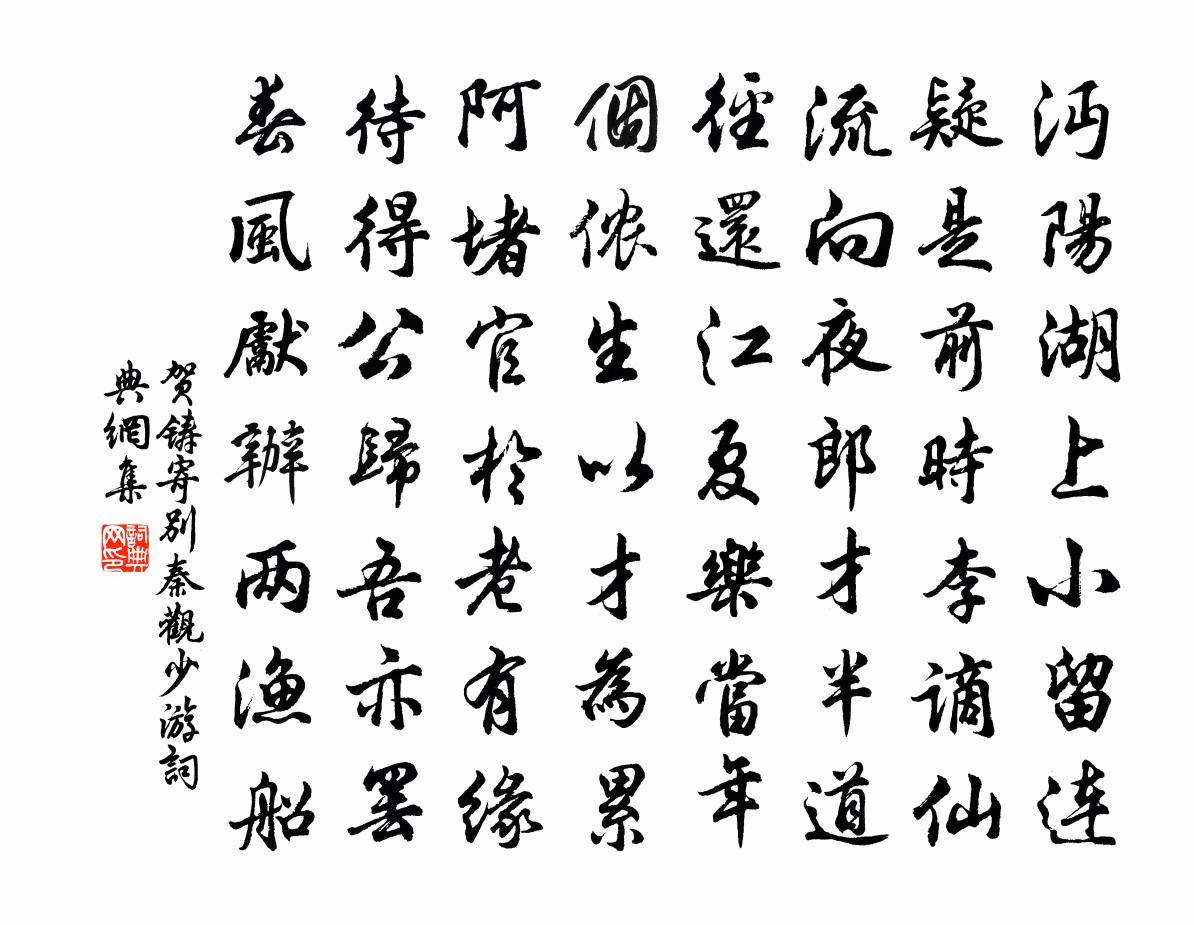 沔陽湖上小留連
疑是前時李謫仙
流向夜郎才半道
徑還江夏樂當年
個儂生以才為累
阿堵官於老有緣
待得公歸吾亦罢
春風獻辦两漁船
贺鑄寄别秦觀少游詞
典網集
詞典网印